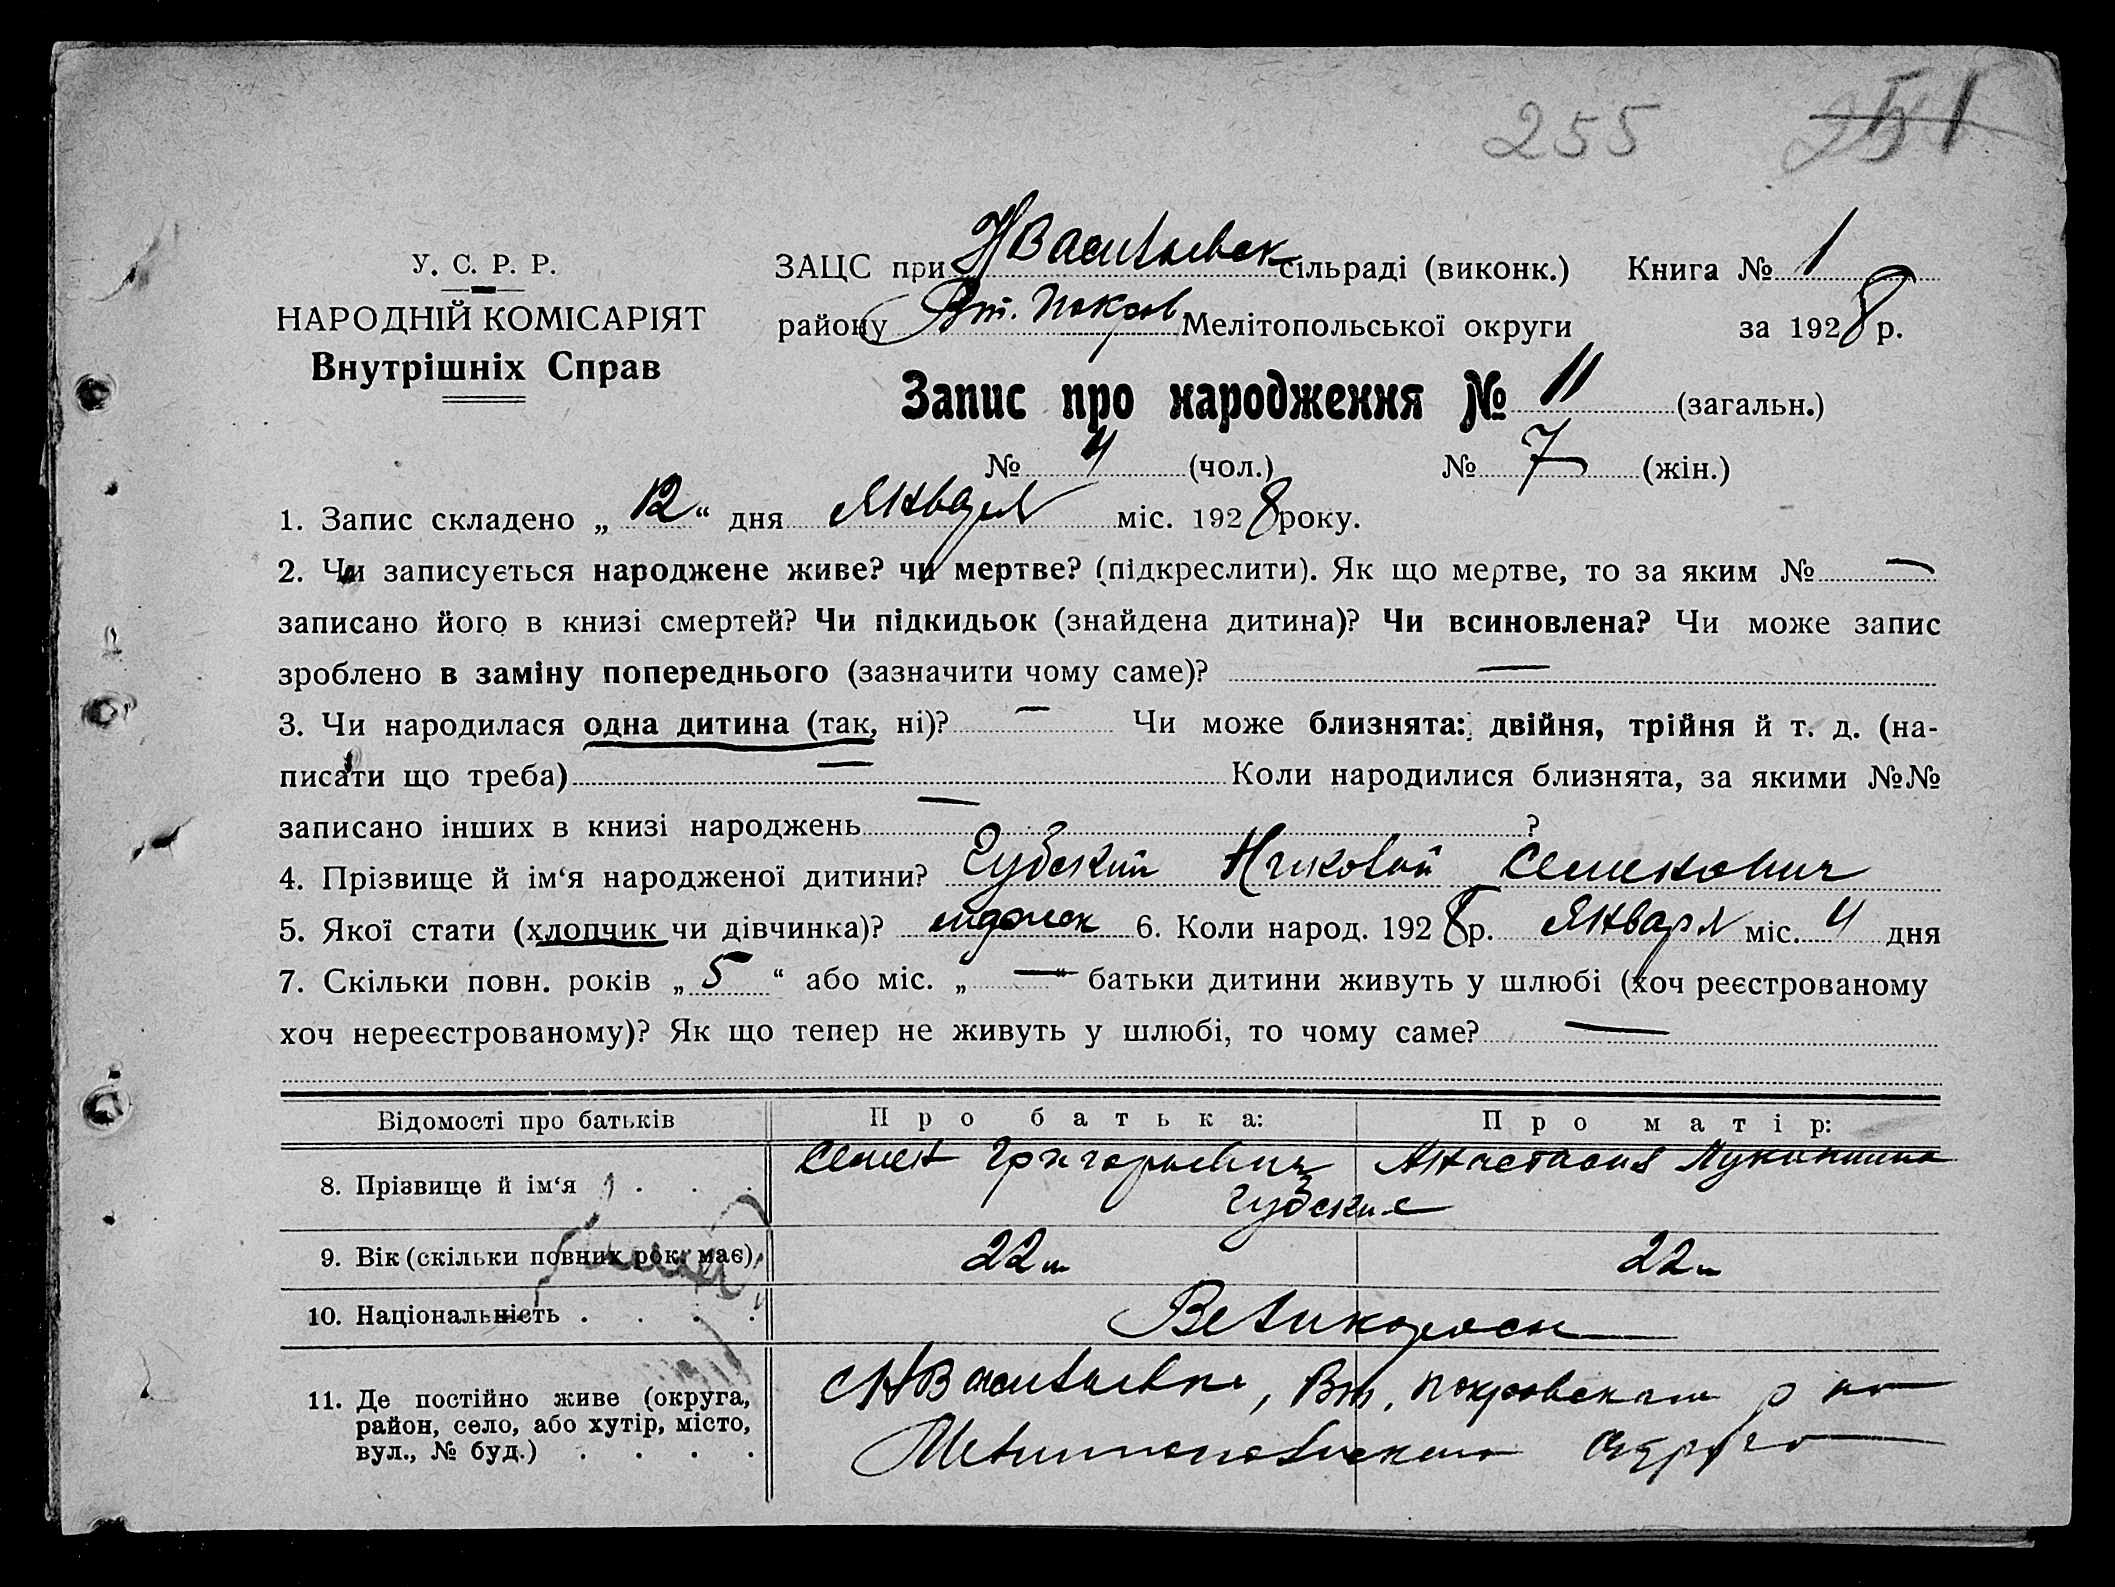 255 251
У. С. Р. Р.
НАРОДНІЙ КОМІСАРІЯТ
Внутрішніх Справ
ЗАЦС при НВасильевск сільраді (виконк.) Книга № 1
району Вт. Покров Мелітопольської округи за 1928 р.
Запис про народження № 11 (загальн.)
№ 4 (чол.) № 7 (жін.)
1. Запис складено „ 12 “ дня Января міс. 1928 року.
2. Чи записується народжене живе? чи мертве? (підкреслити). Як що мертве, то за яким № —
записано його в книзі смертей? Чи підкидьок (знайдена дитина)? Чи всиновлена? Чи може запис
зроблено в заміну попереднього (зазначити чому саме)? —
3. Чи народилася одна дитина (так, ні)? — Чи може близнята: двійня, трійня й т. д. (на-
писати що треба) — Коли народилися близнята, за якими №№
записано інших в книзі народжень — ?
4. Прізвище й ім‘я народженої дитини? Губский Николай Семенович
5. Якої стати (хлопчик чи дівчинка)? 6. Коли народ. 1928 р. Января міс. 4 дня
7. Скільки повн. років „ 5 “ або міс. „ — “ батьки дитини живуть у шлюбі (хоч реєстрованому
хоч нереєстрованому)? Як що тепер не живуть у шлюбі, то чому саме? —
Відомості про батьків Про батька: Про матір:
8. Прізвище й ім‘я . . . Семен Григорьевич Анастасия
Губские
9. Вік (скільки повних рок. має) 22 22
10. Національність . . . . Великоросы
11. Де постійно живе (округа, район, село, або хутір, місто, вул., № буд.) . . . .
с НВасильевка, Вт. Покровского р на
Мелитопольского округа